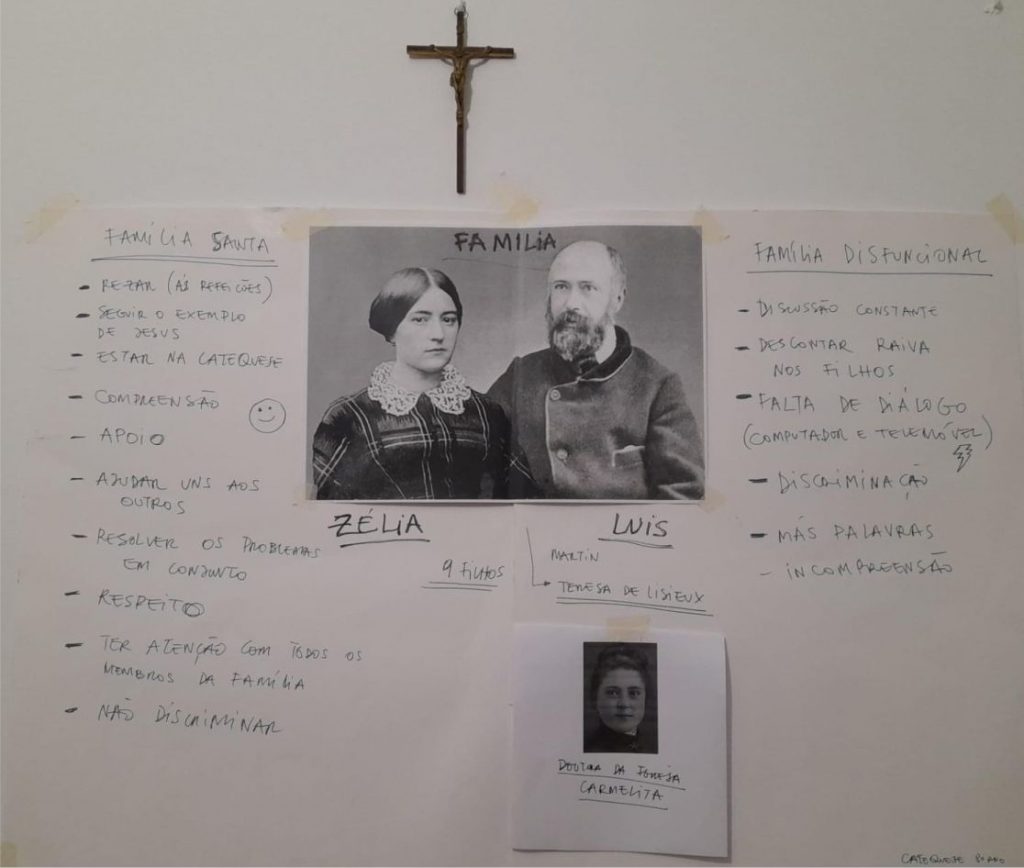 FAMÍLIA SANTA
- REZAR (ÀS REFEIÇÕES)
- SEGUIR O EXEMPLO
DE JESUS
- ESTAR NA CATEQUESE
- COMPREENSÃO
- APOIO
- AJUDAR UNS AOS
OUTROS
- RESOLVER OS PROBLEMAS
EM CONJUNTO
- RESPEITO
- TER ATENÇÃO COM TODOS OS
MEMBROS DA FAMÍLIA
- NÃO DISCRIMINAR
FAMILIA
ZÉLIA
LUIS
9 FILHOS
MARTIN
TERESA DE LISIEUX
DOUTORA DA IGREJA
CARMELITA
FAMÍLIA DISFUNCIONAL
- DISCUSSÃO CONSTANTE
- DESCONTAR RAIVA
NOS FILHOS
- FALTA DE DIÁLOGO
(COMPUTADOR E TELEMÓVEL)
- DISCRIMINAÇÃO
- MÁS PALAVRAS
- INCOMPREENSÃO
CATEQUESE ANO